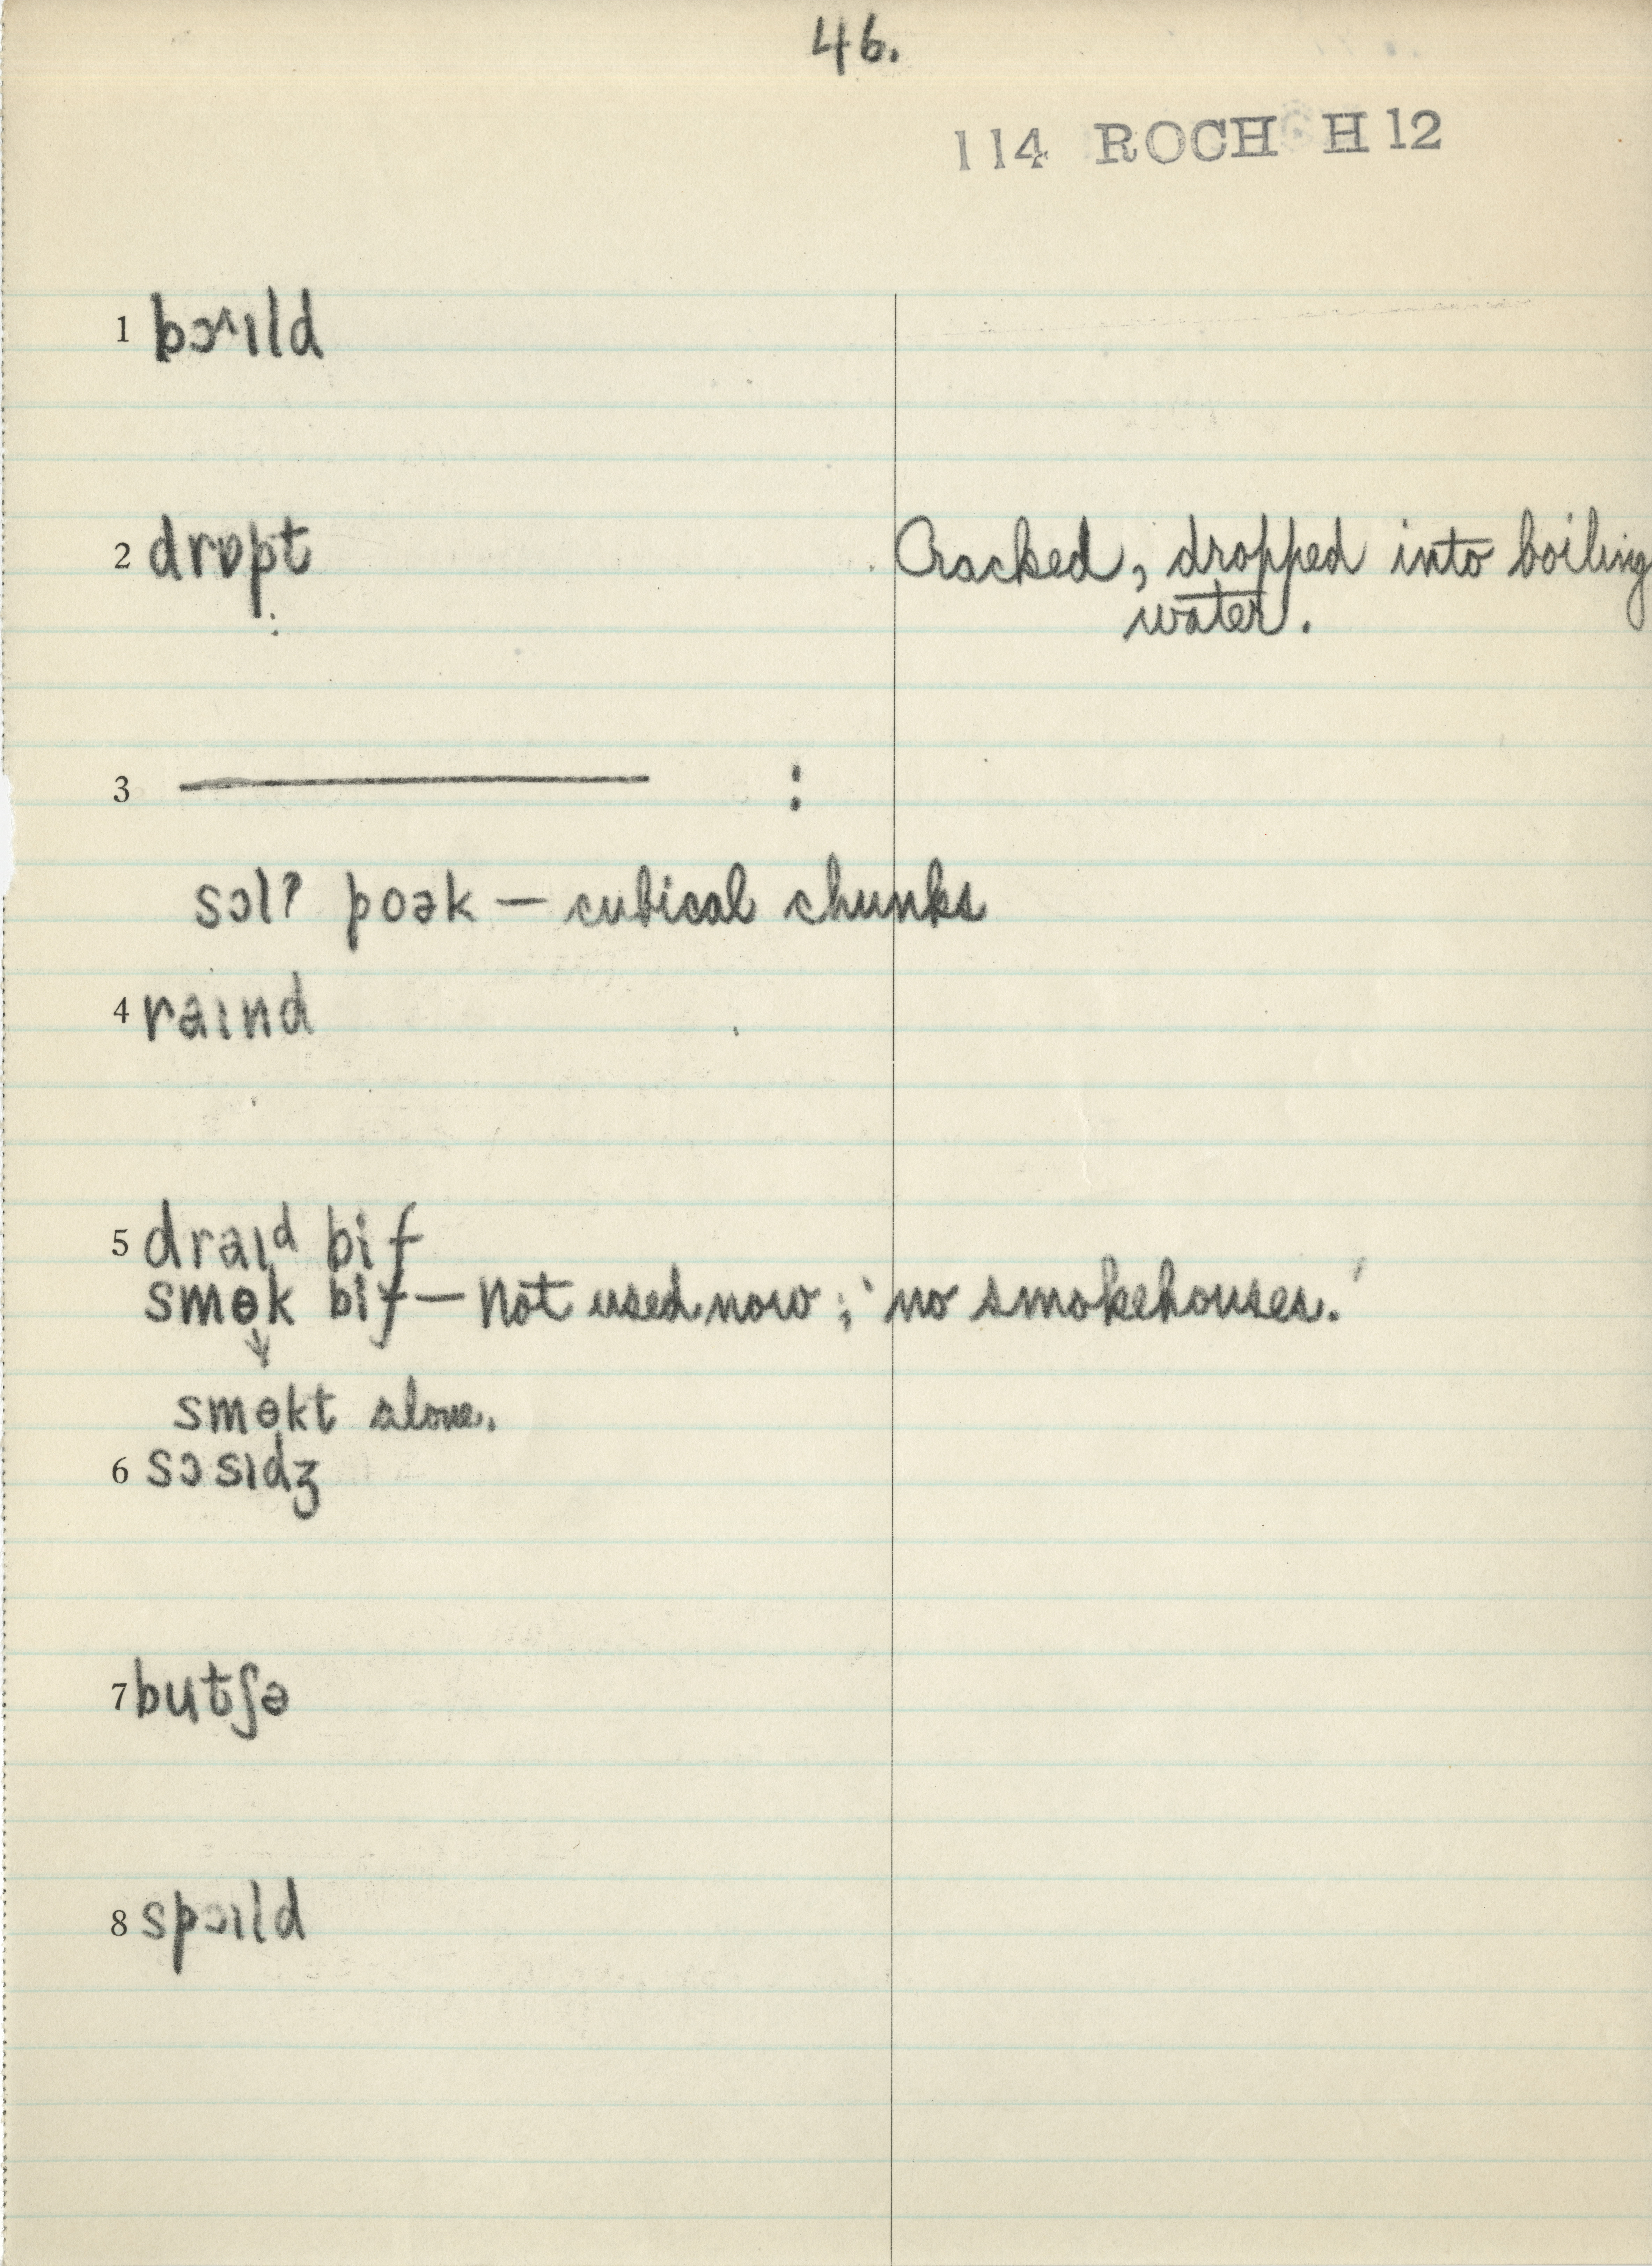 46.
114 ROCH H12
1 bɔ^ɪld
2 drɒpt Cracked, dropped into boiling
water.
3 ——— :
sɔlʔ poək — cubical chunks
4 raɪnd
5 draɪᵈ bif
smɵk bif — Not used now; 'no smokehouses.'
↓
smɵkt alone.
6 sɔsɪdʒ
7 butʃə
8 spɔɪld